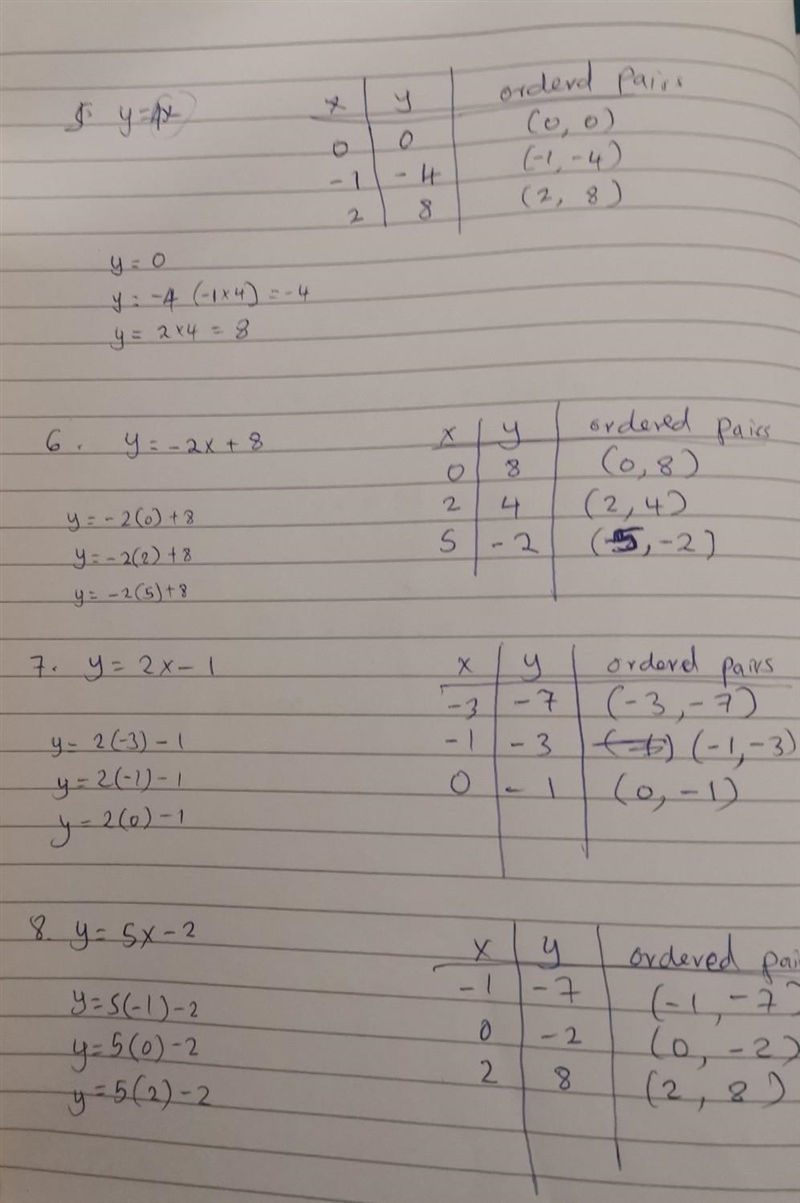 5. y=4x
x y orderd pairs
0 0 (0, 0)
-1 -4 (-1, -4)
2 8 (2, 8)
y = 0
y = -4 (-1x4) = -4
y = 2x4 = 8
6. y = -2x + 8
x y ordered pairs
0 8 (0, 8)
2 4 (2, 4)
5 -2 (5, -2)
y = -2(0) +8
y = -2(2) +8
y = -2(5) +8
7. y = 2x - 1
x y ordered pairs
-3 -7 (-3, -7)
-1 -3 (-1, -3)
0 -1 (0, -1)
y = 2(-3) - 1
y = 2(-1) - 1
y = 2(0) - 1
8. y = 5x - 2
x y ordered pai
-1 -7 (-1, -7)
0 -2 (0, -2)
2 8 (2, 8)
y = 5(-1) - 2
y = 5(0) - 2
y = 5(2) - 2